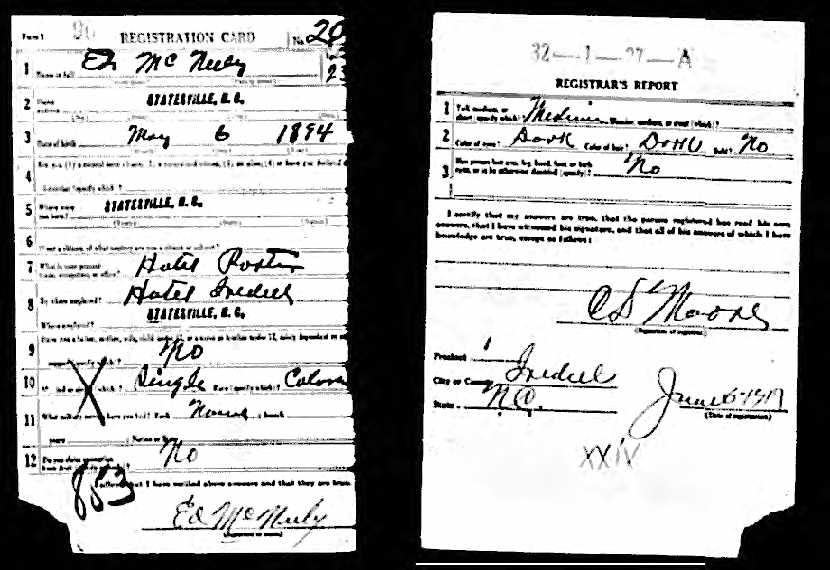 Form 1 REGISTRATION CARD No. 20
1 Ed McNeely 23
Name in full
2 STATESVILLE, N. C.
Home address
3 May 6 1894
Date of birth
4
5 STATESVILLE, N. C.
Where were you born?
6
7 Hotel Porter
What is your present trade, occupation, or office?
8 Hotel Iredell
By whom employed?
STATESVILLE, N. C.
Where employed?
9 No
10 Single Race (specify which)? Colore
11 What military service have you had? Rank None ; branch
years ; Nation or State
12 No
Do you claim exemption from draft
883
I affirm that I have verified above answers and that they are true.
Ed McNeely
(Signature or mark)
32—1—27—A
REGISTRAR'S REPORT
1 Tall, medium, or short (specify which)? Medium Slender, medium, or stout (which)?
2 Color of eyes? Dark Color of hair? Dark Bald? No
3 Has person lost arm, leg, hand, foot, or both eyes, or is he otherwise disabled (specify)? No
I certify that my answers are true, that the person registered has read his own
answers, that I have witnessed his signature, and that all of his answers of which I have
knowledge are true, except as follows:
C S Moore
(Signature of registrar)
Precinct 1
City or County Iredell
State NC
June 5-1917
(Date of registration)
XXIV